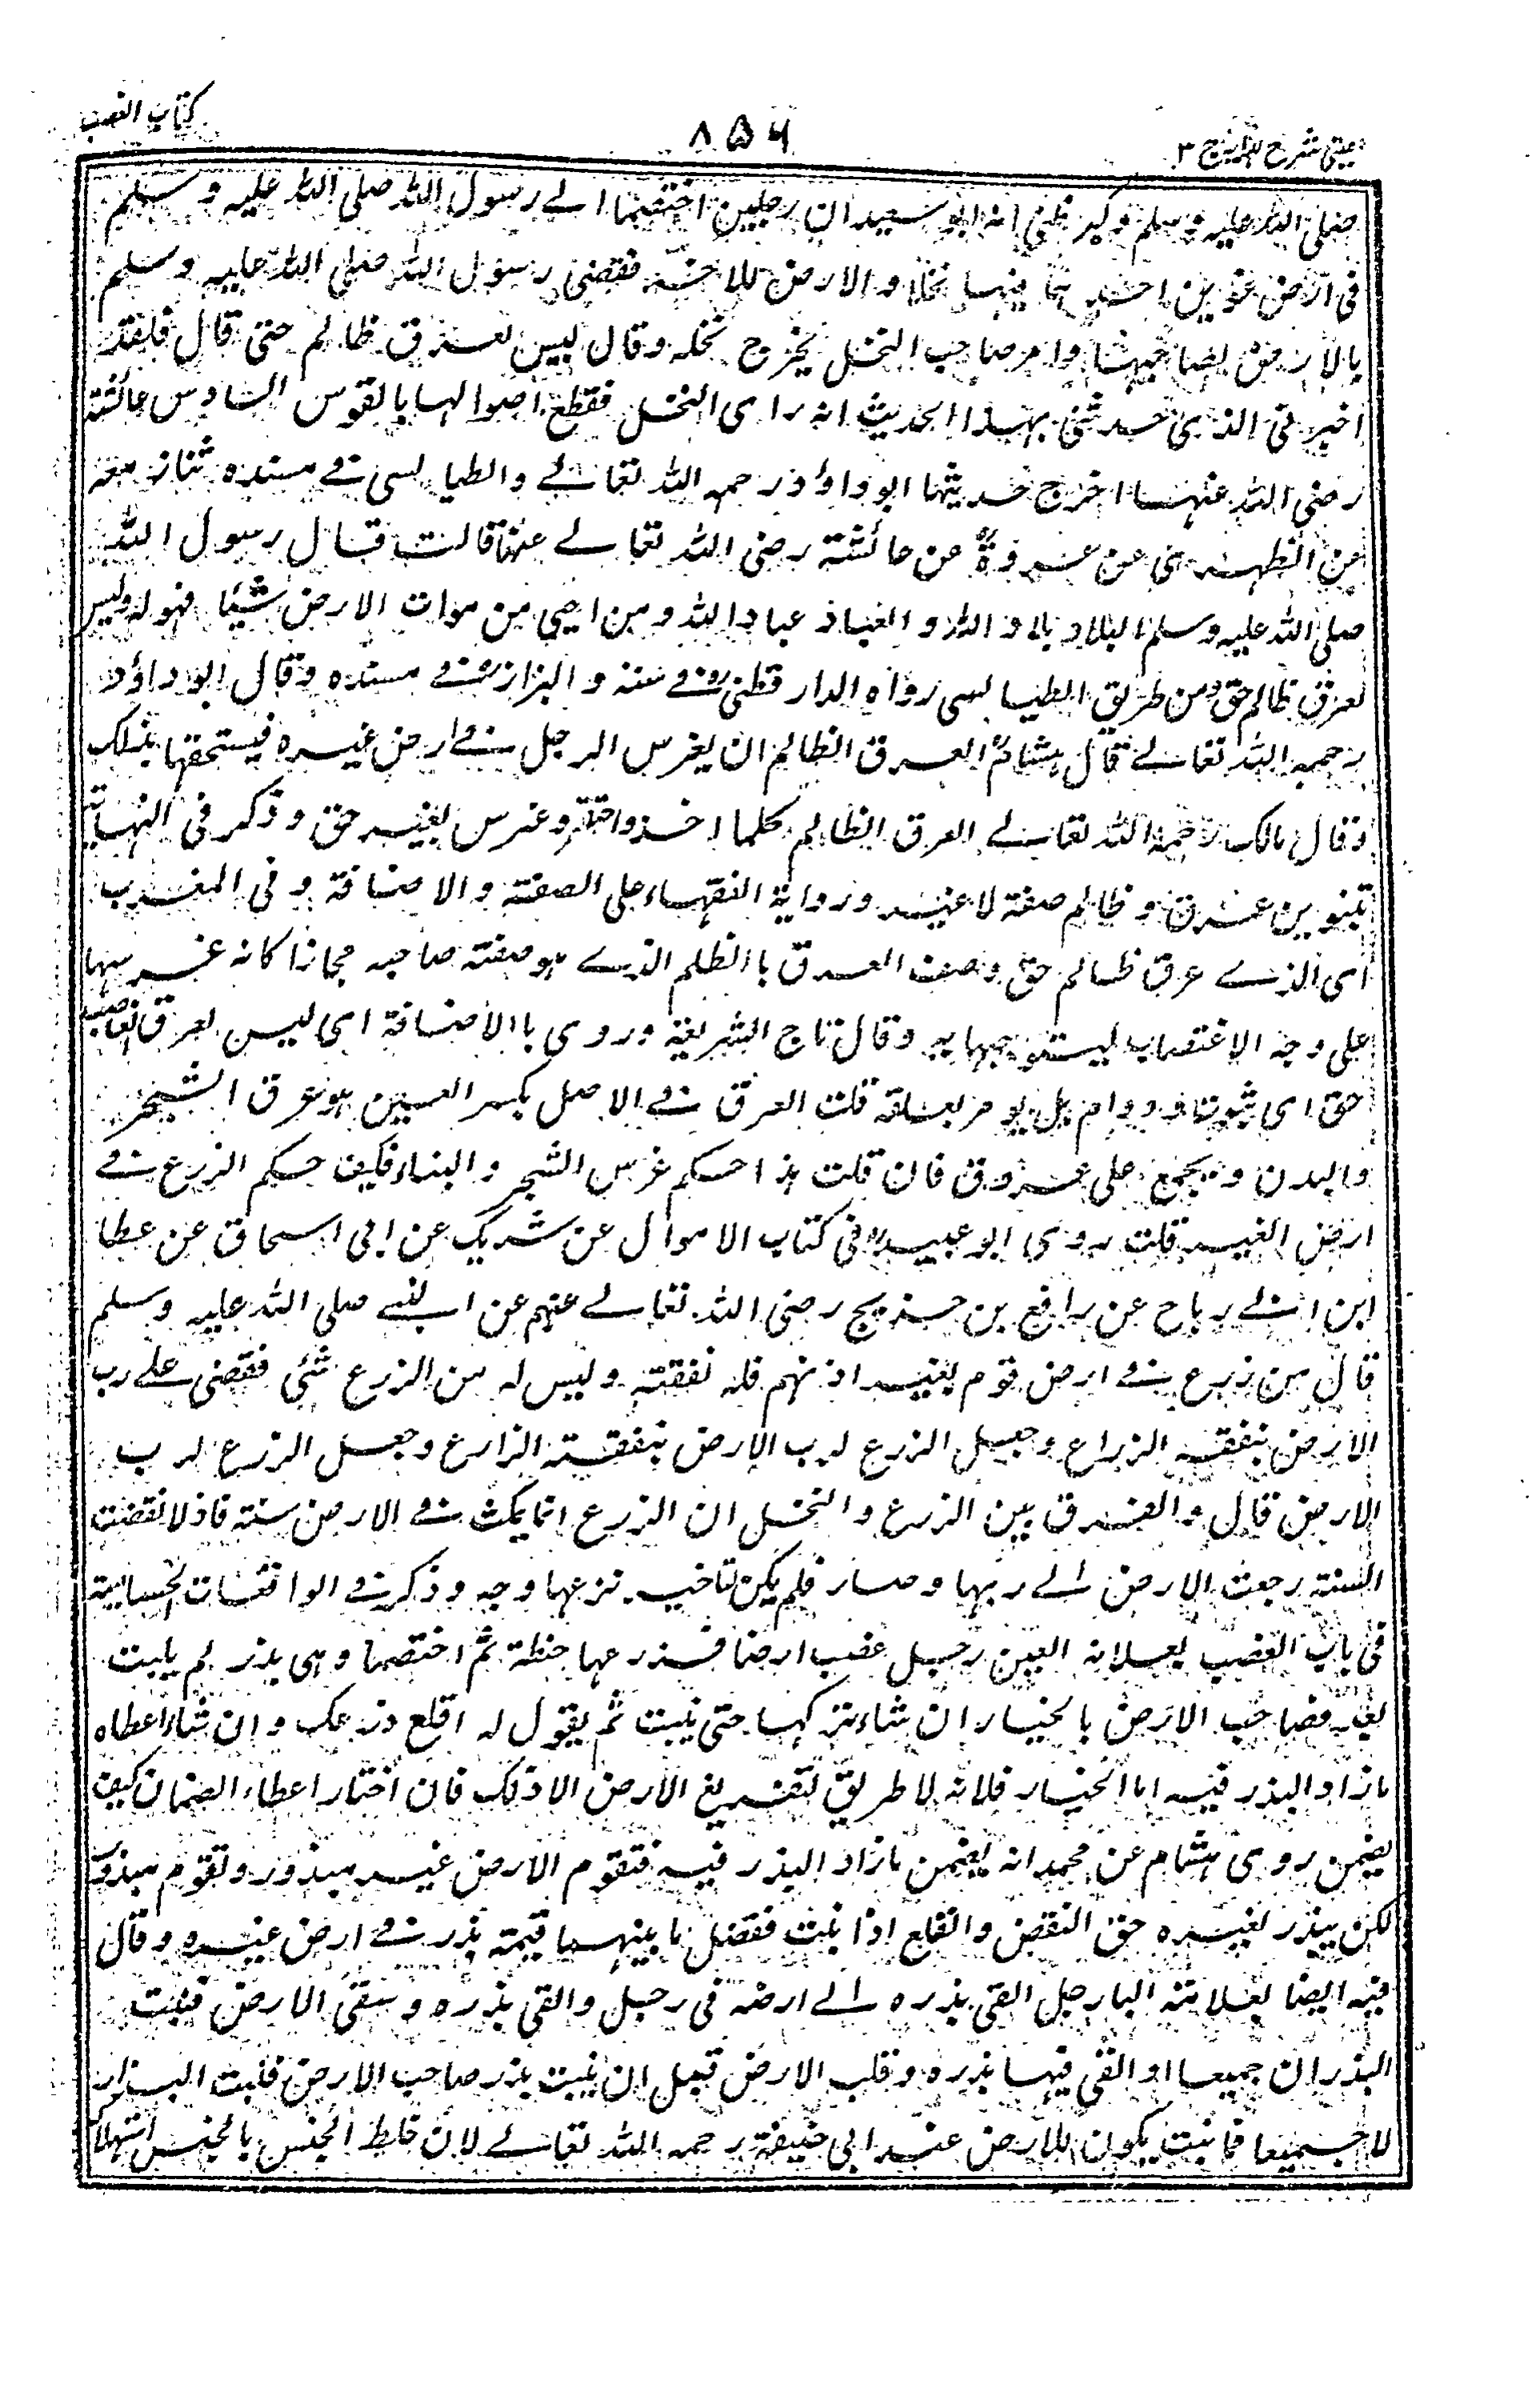 كتاب الغصب
٨٥٦
عينى شرح هداية ج ٣
صلى الله عليه وسلم واكبر ظنى انه ابو سعيد ان رجلين اختصما الے رسول الله صلى الله عليه وسلم
فى ارض غرس احدهما فيها نخلا والارض للاخر فقضى رسول الله صلى الله عليه وسلم
بالارض لصاحبها وامر صاحب النخل يخرج نخله وقال ليس لعرق ظالم حتى قال فلقد
اخبرنى الذى حدثنى بهذا الحديث انه راى النخل فقطع اصولها بالقوس السادس عائشة
رضى الله عنها اخرج حديثها ابو داؤد رحمه الله تعالے والطيالسى نے مسنده ثنا زمعة
عن الزهرى عن عروة عن عائشة رضى الله تعالے عنها قالت قال رسول الله
صلى الله عليه وسلم البلاد بلاد الله والعباد عباد الله ومن احيى من موات الارض شيئا فهو له وليس
لعرق ظالم حق ومن طريق الطيالسى رواه الدارقطنى فے سننه والبزار فے مسنده وقال ابو داؤد
رحمه الله تعالے قال هشام العرق الظالم ان يغرس الرجل فے ارض غيره فيستحقها بذلك
وقال مالك رحمه الله تعالے العرق الظالم كلما اخذ واحتفر وغرس بغير حق وذكر فى النهاية
بتنوين عرق وظالم صفة لا غير ورواية الفقهاء على الصفة والاضافة وفى المغرب
اى الذے عرق ظالم حق وصف العرق باالظلم الذے هو صفة صاحبه مجازا كانه غرسها
على وجه الاغتصاب ليستوجبها به وقال تاج الشريعة وروى باالاضافة اى ليس لعرق الغاصب
حق اى ثبوت ودوام بل يومر بقلعه قلت العرق فے الاصل بكسر العين هو عرق الشجر
والبدن ويجمع على عروق فان قلت هذا حكم غرس الشجر والبناء فكيف حكم الزرع فے
ارض الغير قلت روى ابو عبيد فى كتاب الاموال عن شريك عن ابى اسحاق عن عطا
ابن ابے رباح عن رافع بن خديج رضى الله تعالے عنهم عن النبے صلى الله عليه وسلم
قال من زرع فے ارض قوم بغير اذنهم فله نفقته وليس له من الزرع شئى فقضى علے رب
الارض بنفقه الزراع وجعل الزرع لرب الارض بنفقته الزارع وجعل الزرع لرب
الارض قال والفرق بين الزرع والنخل ان الزرع انما يمكث فے الارض سنته فاذ لانقضت
السنة رجعت الارض الے ربها وصار فلم يكن لتاخير نزعها وجه وذكر فے الواقعات الحسامية
فى باب الغصب بعلانه العين رجل غصب ارضا فزرعها حنطة ثم اختصما وهى بذر لم ينبت
بعد فصاحب الارض بالخيار ان شاء تركها حتى ينبت ثم يقول له اقلع زرعك وان شاء اعطاه
مازاد البذر فيه اما الخيار فلانه لا طريق لتفريغ الارض الا ذلك فان اختار اعطاء الضمان كيف
يضمن روى هشام عن محمد انه يضمن مازاد البذر فيه فتقوم الارض غير مبذور وتقوم مبذورة
لكن يبذر لغيره حق النقض والقلع اذا نبت ففضل ما بينهما قيمة بذر فے ارض غيره وقال
فيه ايضا بعلامته البا رجل القى بذره الے ارضه فى رجل والقى بذره وسقى الارض فنبت
البذران جميعا او القى فيها بذره وقلب الارض قبل ان ينبت بذر صاحب الارض فنبت البذران
لا جميعا فما نبت يكون للارض عند ابى حنيفة رحمه الله تعالے لان خلط الجنس بالجنس استهلاك